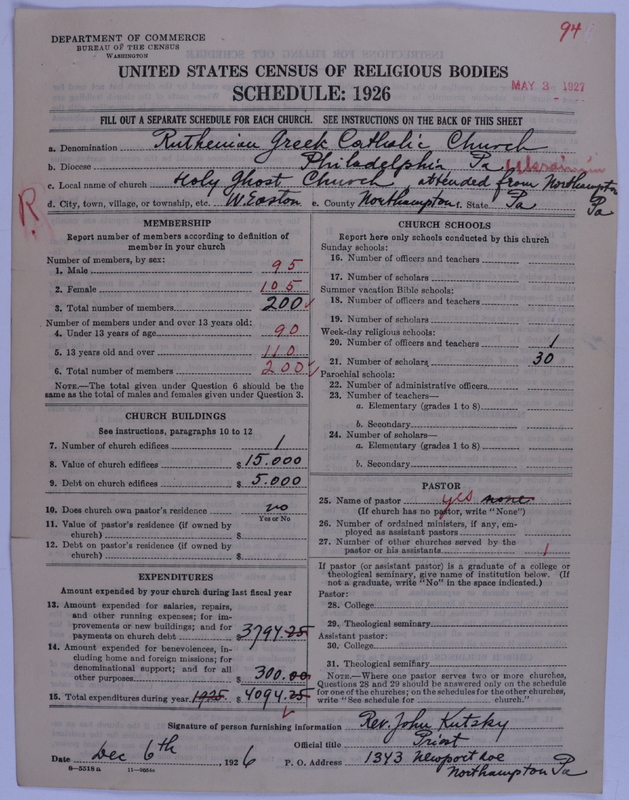 94
DEPARTMENT OF COMMERCE
BUREAU OF THE CENSUS
WASHINGTON
UNITED STATES CENSUS OF RELIGIOUS BODIES
MAY 3 1927
SCHEDULE: 1926
FILL OUT A SEPARATE SCHEDULE FOR EACH CHURCH. SEE INSTRUCTIONS ON THE BACK OF THIS SHEET
a. Denomination Ruthenian Greek Catholic Church
b. Diocese Philadelphia Pa Ukrainian
c. Local name of church Holy Ghost Church, attended from Northampton Pa
d. City, town, village, or township, etc. W. Easton e. County Northampton f. State Pa
R
MEMBERSHIP
Report number of members according to definition of
member in your church
Number of members, by sex:
1. Male 95
2. Female 105
3. Total number of members 200
Number of members under and over 13 years old:
4. Under 13 years of age 90
5. 13 years old and over 110
6. Total number of members 200
NOTE.—The total given under Question 6 should be the
same as the total of males and females given under Question 3.
CHURCH BUILDINGS
See instructions, paragraphs 10 to 12
7. Number of church edifices 1
8. Value of church edifices $ 15.000
9. Debt on church edifices $ 5.000
10. Does church own pastor's residence no
Yes or No
11. Value of pastor's residence (if owned by
church) $
12. Debt on pastor's residence (if owned by
church) $
EXPENDITURES
Amount expended by your church during last fiscal year
13. Amount expended for salaries, repairs,
and other running expenses; for im-
provements or new buildings; and for
payments on church debt $ 3794.25
14. Amount expended for benevolences, in-
cluding home and foreign missions; for
denominational support; and for all
other purposes $ 300.00
15. Total expenditures during year 1925 $ 4094.25
CHURCH SCHOOLS
Report here only schools conducted by this church
Sunday schools:
16. Number of officers and teachers
17. Number of scholars
Summer vacation Bible schools:
18. Number of officers and teachers
19. Number of scholars
Week-day religious schools:
20. Number of officers and teachers 1
21. Number of scholars 30
Parochial schools:
22. Number of administrative officers
23. Number of teachers—
a. Elementary (grades 1 to 8)
b. Secondary
24. Number of scholars—
a. Elementary (grades 1 to 8)
b. Secondary
PASTOR
25. Name of pastor yes none
(If church has no pastor, write "None")
26. Number of ordained ministers, if any, em-
ployed as assistant pastors
27. Number of other churches served by the
pastor or his assistants 1
If pastor (or assistant pastor) is a graduate of a college or
theological seminary, give name of institution below. (If
not a graduate, write "No" in the space indicated.)
Pastor:
28. College
29. Theological seminary
Assistant pastor:
30. College
31. Theological seminary
NOTE.—Where one pastor serves two or more churches,
Questions 28 and 29 should be answered only on the schedule
for one of the churches; on the schedules for the other churches,
write "See schedule for church."
Signature of person furnishing information Rev. John Kutsky
Official title Priest
Date Dec 6th, 1926 P. O. Address 1343 Newport Ave
Northampton Pa
8—5518 a